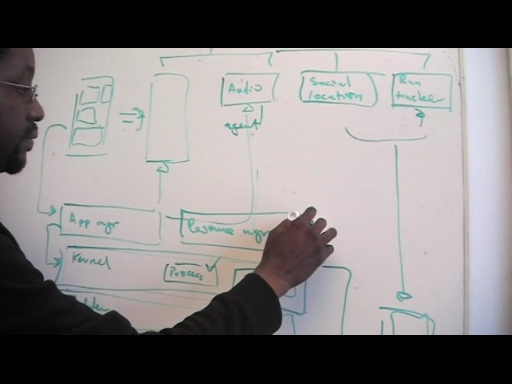 Audio
Social
location
Run
tracker
agent
App mgr
Resource mgr
Kernel
Process